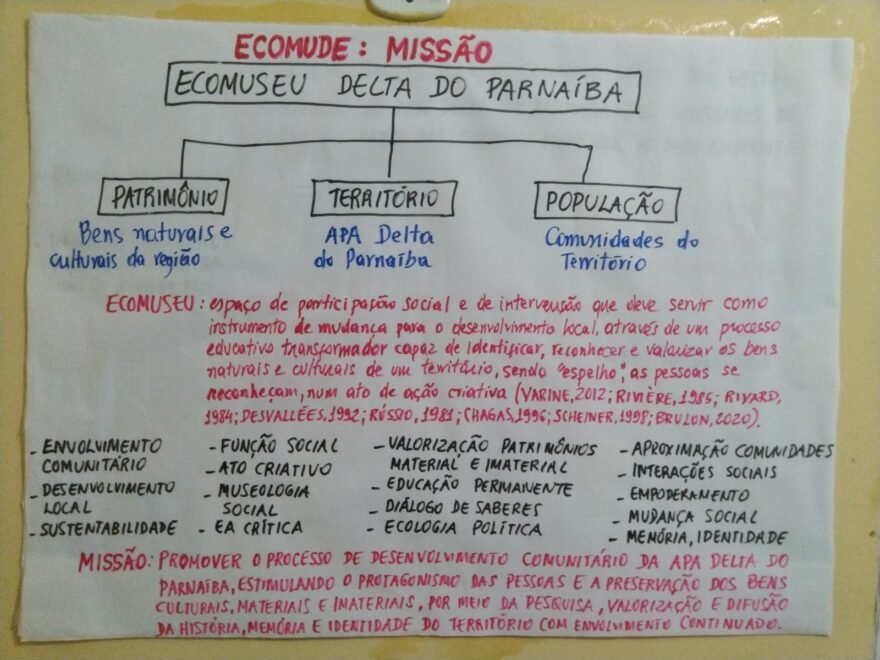 ECOMUDE: MISSÃO
ECOMUSEU DELTA DO PARNAÍBA
PATRIMÔNIO
TERRITÓRIO
POPULAÇÃO
Bens naturais e
culturais da região
APA Delta
do Parnaíba
Comunidades do
Território
ECOMUSEU: espaço de participação social e de intervenção que deve servir como
instrumento de mudança para o desenvolvimento local, através de um processo
educativo transformador capaz de identificar, reconhecer e valorizar os bens
naturais e culturais de um território, sendo "espelho", as pessoas se
reconheçam, num ato de ação criativa (VARINE, 2012; RIVIÈRE, 1985; RIVARD,
1984; DESVALLÉES, 1992; RÚSSIO, 1981; CHAGAS, 1996; SCHEINER, 1998; BRULON, 2020).
- ENVOLVIMENTO
COMUNITÁRIO
- DESENVOLVIMENTO
LOCAL
- SUSTENTABILIDADE
- FUNÇÃO SOCIAL
- ATO CRIATIVO
- MUSEOLOGIA
SOCIAL
- EA CRÍTICA
- VALORIZAÇÃO PATRIMÔNIOS
MATERIAL E IMATERIAL
- EDUCAÇÃO PERMANENTE
- DIÁLOGO DE SABERES
- ECOLOGIA POLÍTICA
- APROXIMAÇÃO COMUNIDADES
- INTERAÇÕES SOCIAIS
- EMPODERAMENTO
- MUDANÇA SOCIAL
- MEMÓRIA, IDENTIDADE
MISSÃO: PROMOVER O PROCESSO DE DESENVOLVIMENTO COMUNITÁRIO DA APA DELTA DO
PARNAÍBA, ESTIMULANDO O PROTAGONISMO DAS PESSOAS E A PRESERVAÇÃO DOS BENS
CULTURAIS, MATERIAIS E IMATERIAIS, POR MEIO DA PESQUISA, VALORIZAÇÃO E DIFUSÃO
DA HISTÓRIA, MEMÓRIA E IDENTIDADE DO TERRITÓRIO COM ENVOLVIMENTO CONTINUADO.